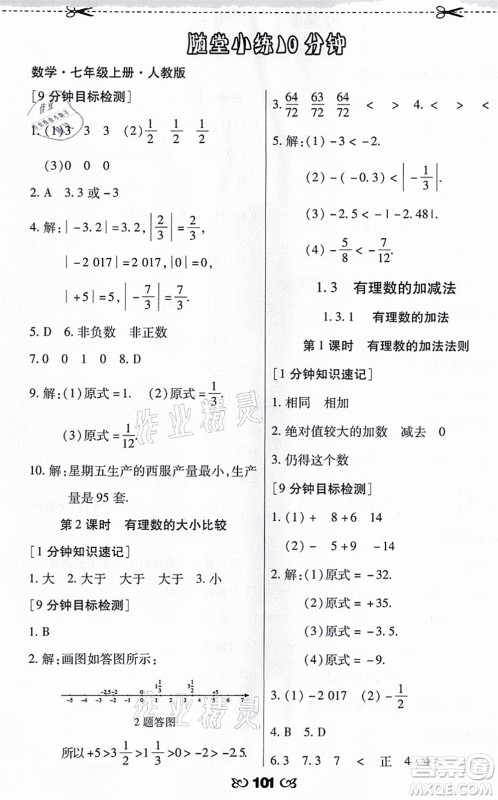 随堂小练10分钟
数学·七年级上册·人教版
[9分钟目标检测]
1. (1)3 3 3 (2)1/2 1/2 1/2
(3)0 0 0
2. A 3. 3或-3
4. 解:|-3.2|=3.2,|2/3|=2/3,
|-2 017|=2 017,|0|=0,
|+5|=5,|-7/3|=7/3.
5. D 6. 非负数 非正数
7. 0 0 1 0 8. D
9. 解:(1)原式=1. (2)原式=1/3.
(3)原式=1/12.
10. 解:星期五生产的西服产量最小,生产
量是95套.
第2课时 有理数的大小比较
[1分钟知识速记]
1. 大 2. 大于 大于 大于 3. 小
[9分钟目标检测]
1. B
2. 解:画图如答图所示:
-2.5 -2 1 1/3 3 1/2
-5 -4 -3 -2 -1 0 1 2 3 4 5 6 7
2题答图
所以+5>3 1/2>1 1/3>0>-2>-2.5.
3. 64/72 63/72 64/72 63/72 < > 4. < > < >
5. 解:(1)-3<-2.
(2)-(-0.3)<|-1/3|.
(3)-|-2.5|<-|-2.48|.
(4)-5/8<-7/12.
1.3 有理数的加减法
1.3.1 有理数的加法
第1课时 有理数的加法法则
[1分钟知识速记]
1. 相同 相加
2. 绝对值较大的加数 减去 0
3. 仍得这个数
[9分钟目标检测]
1. (1)+ (2)- (3)+
2. 解:(1)原式=-32.
(2)原式=-35.
(3)原式=0.
(4)原式=-9.
3. (1)-2 017 (2)-1/2
4. B 5. D
6. 3 7. 3 7 < 正 4 4
101
作业精灵
作业精灵
答案圈
MXQE.COM